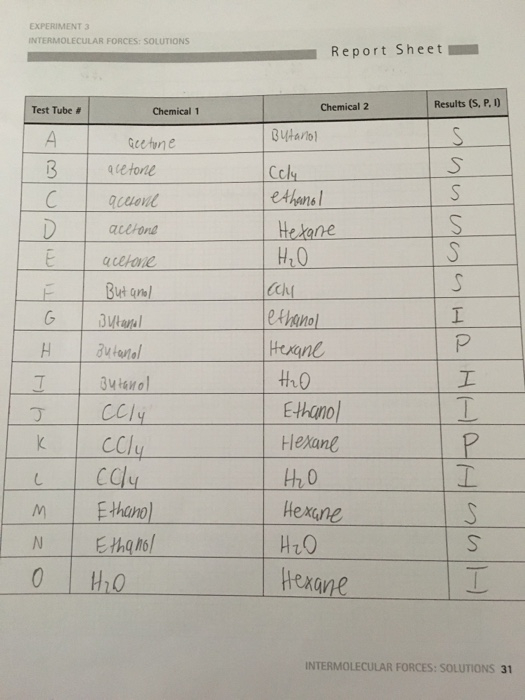 EXPERIMENT 3
INTERMOLECULAR FORCES: SOLUTIONS
Report Sheet
Test Tube # Chemical 1 Chemical 2 Results (S, P, I)
A acetone Butanol S
B acetone CCl4 S
C acetone ethanol S
D acetone Hexane S
E acetone H2O S
F Butanol CCl4 S
G Butanol ethanol I
H Butanol Hexane P
I Butanol H2O I
J CCl4 Ethanol I
K CCl4 Hexane P
L CCl4 H2O I
M Ethanol Hexane S
N Ethanol H2O S
O H2O Hexane I
INTERMOLECULAR FORCES: SOLUTIONS 31